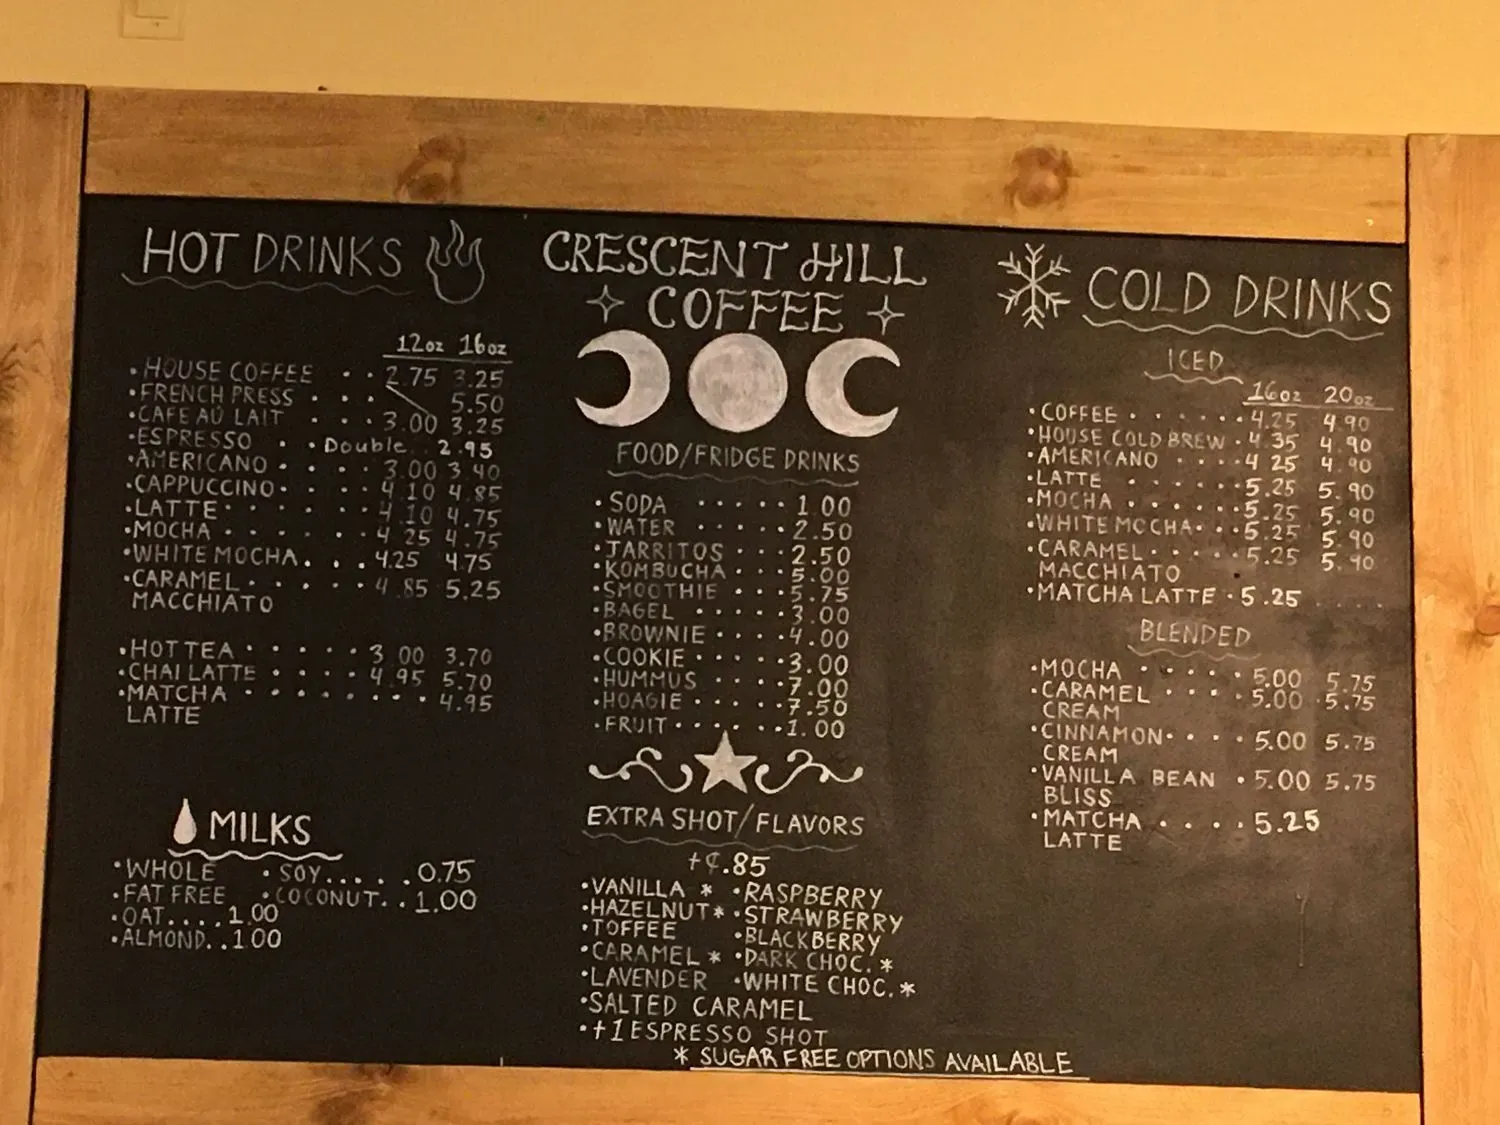 HOT DRINKS
12oz 16oz
• HOUSE COFFEE . . 2.75 3.25
• FRENCH PRESS . . . 5.50
• CAFE AU LAIT . . . 3.00 3.25
• ESPRESSO . . Double.. 2.95
• AMERICANO . . . . 3.00 3.40
• CAPPUCCINO . . . . 4.10 4.85
• LATTE . . . . . . 4.10 4.75
• MOCHA . . . . . . 4.25 4.75
• WHITE MOCHA . . . 4.25 4.75
• CARAMEL . . . . . 4.85 5.25
MACCHIATO
• HOT TEA . . . . . 3 00 3.70
• CHAI LATTE . . . . 4.95 5.70
• MATCHA . . . . . . . 4.95
LATTE
MILKS
• WHOLE • SOY..... .0.75
• FAT FREE • COCONUT...1.00
• OAT....1.00
• ALMOND..1 00
CRESCENT HILL
COFFEE
FOOD/FRIDGE DRINKS
• SODA . . . . . 1.00
• WATER . . . . . 2.50
• JARRITOS . . . 2.50
• KOMBUCHA . . . 5.00
• SMOOTHIE . . . 5.75
• BAGEL . . . . 3.00
• BROWNIE . . . . 4.00
• COOKIE . . . . 3.00
• HUMMUS . . . . 7.00
• HOAGIE . . . . 7.50
• FRUIT . . . . . 1.00
EXTRA SHOT/FLAVORS
+¢.85
• VANILLA * • RASPBERRY
• HAZELNUT * • STRAWBERRY
• TOFFEE • BLACKBERRY
• CARAMEL * • DARK CHOC. *
• LAVENDER • WHITE CHOC. *
• SALTED CARAMEL
• +1 ESPRESSO SHOT
* SUGAR FREE OPTIONS AVAILABLE
COLD DRINKS
ICED
16oz 20oz
• COFFEE . . . . . . 4.25 4.90
• HOUSE COLD BREW . 4.35 4.90
• AMERICANO . . . . 4 25 4.90
• LATTE . . . . . 5.25 5.90
• MOCHA . . . . . 5.25 5.90
• WHITE MOCHA . . . 5.25 5.90
• CARAMEL . . . . . 5.25 5.90
MACCHIATO
• MATCHA LATTE . 5.25
BLENDED
• MOCHA . . . . . 5.00 5.75
• CARAMEL . . . . 5.00 5.75
CREAM
• CINNAMON . . . . 5.00 5.75
CREAM
• VANILLA BEAN . 5.00 5.75
BLISS
• MATCHA . . . . 5.25
LATTE